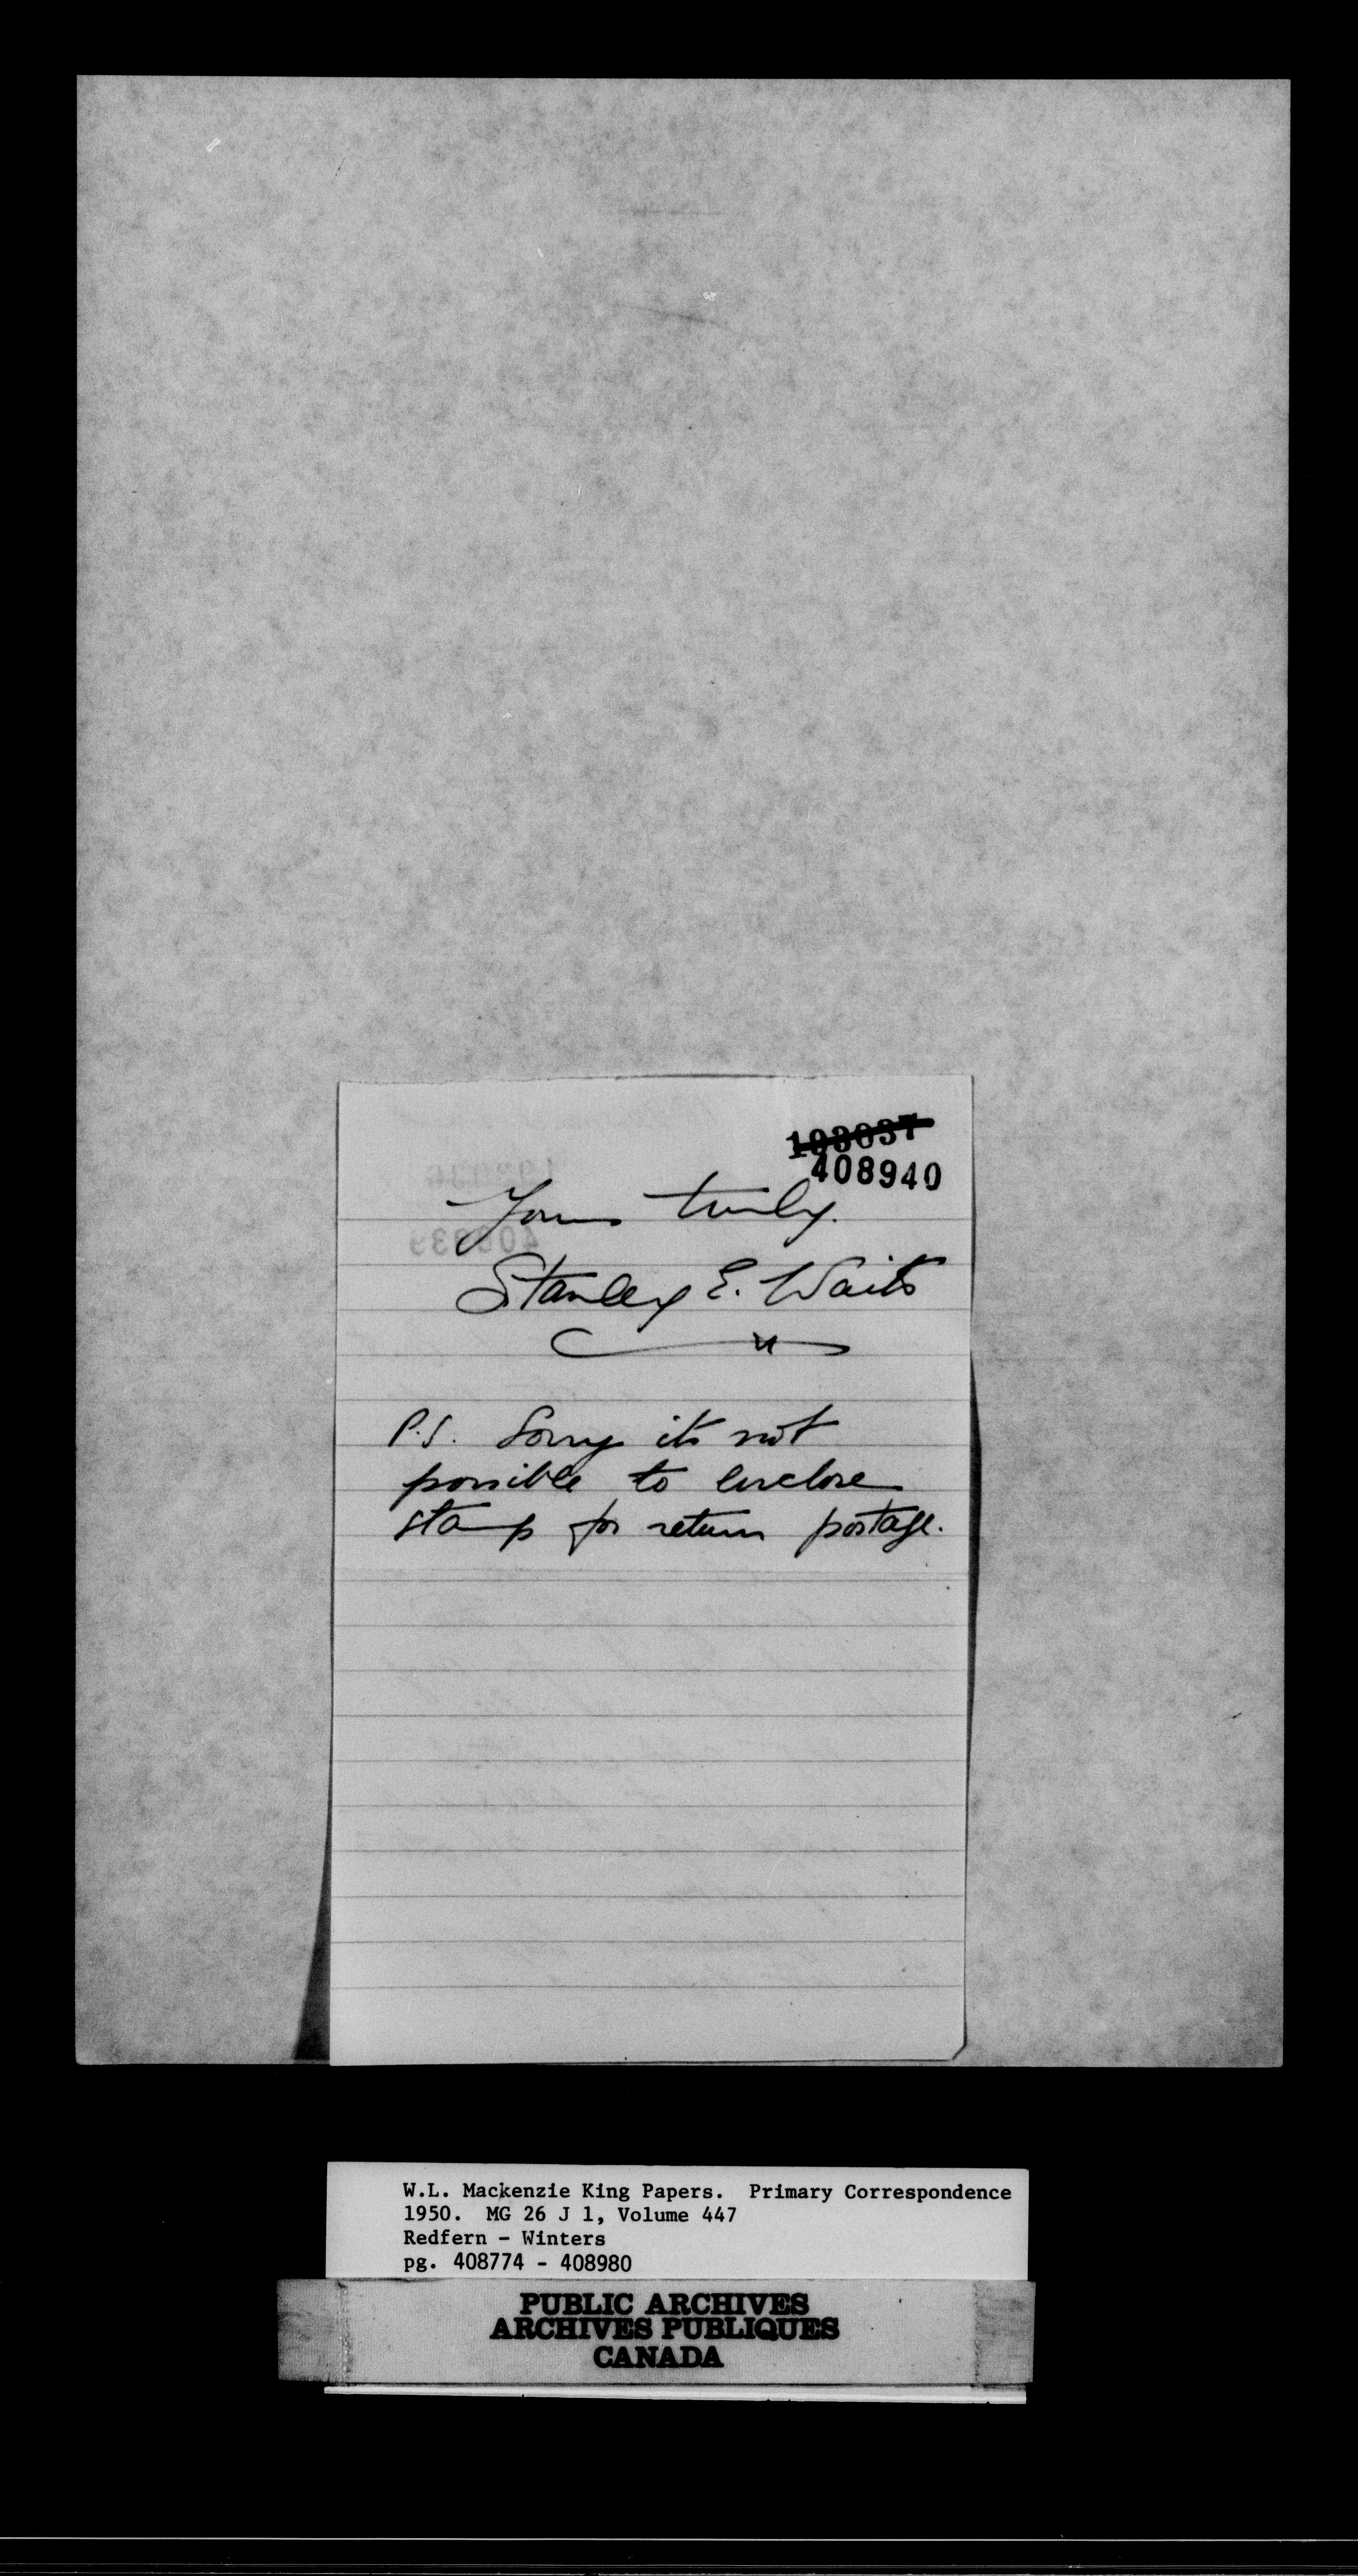 193037
408940
Yours truly.
Stanley E. Waits
P.S. Sorry its not
possible to enclose
stamp for return postage.
W.L. Mackenzie King Papers. Primary Correspondence
1950. MG 26 J 1, Volume 447
Redfern - Winters
pg. 408774 - 408980
PUBLIC ARCHIVES
ARCHIVES PUBLIQUES
CANADA